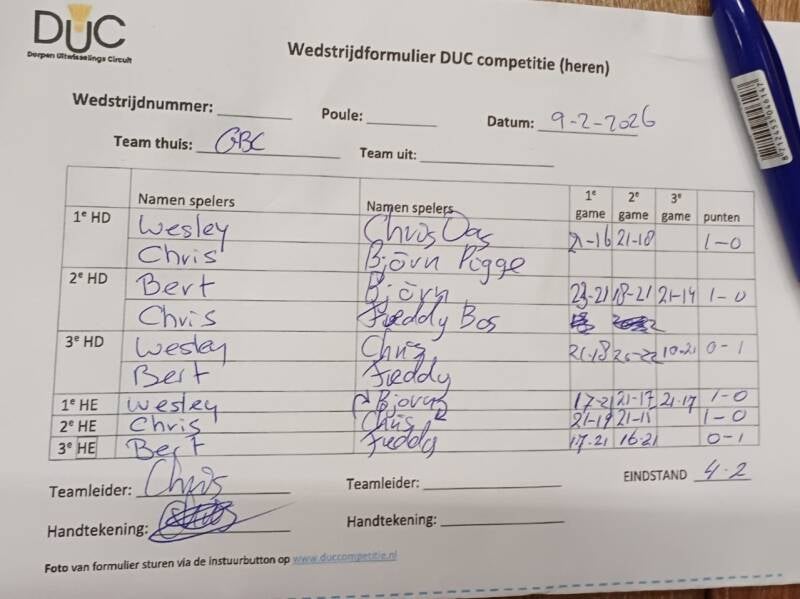 DUC
Dorpen Uitwisselings Circuit
Wedstrijdformulier DUC competitie (heren)
Wedstrijdnummer:
Poule:
Datum: 9-2-2026
Team thuis: GBC
Team uit:
Namen spelers Namen spelers 1e game 2e game 3e game punten
1e HD Wesley Chris Das 21-16 21-18 1-0
Chris Bjorn Pigge
2e HD Bert Bjorn 23-21 18-21 21-14 1-0
Chris Freddy Bos
3e HD Wesley Chris 21-18 20-22 10-21 0-1
Bert Freddy
1e HE Wesley Bjorn 17-21 21-17 21-17 1-0
2e HE Chris Chris 21-19 21-11 1-0
3e HE Bert Freddy 17-21 16-21 0-1
Teamleider: Chris Teamleider: EINDSTAND 4-2
Handtekening: Handtekening:
Foto van formulier sturen via de instuurbutton op www.duccompetitie.nl